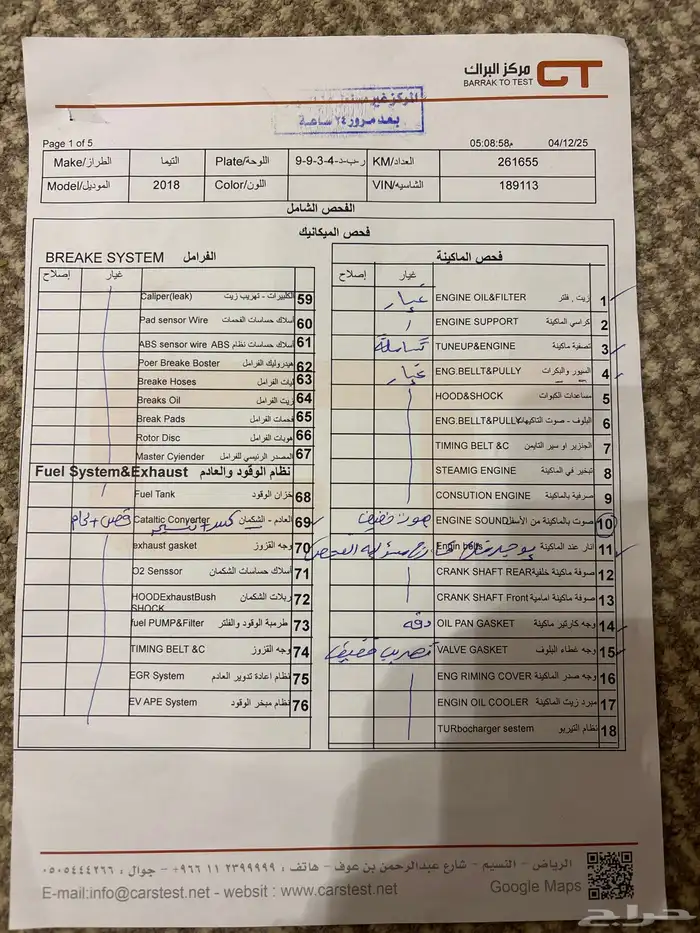 مركز البراك
BARRAK TO TEST
CT
المركز غير
بعد مرور ٢٤ ساعة
Page 1 of 5
05:08:58م
04/12/25
Make/الطراز التيما Plate/اللوحة ر-ب-د-4-3-9-9 KM/العداد 261655
Model/الموديل 2018 Color/اللون VIN/الشاسيه 189113
الفحص الشامل
فحص الميكانيك
فحص الماكينة
غيار إصلاح
1 زيت , فلتر ENGINE OIL&FILTER غيار
2 كراسي الماكينة ENGINE SUPPORT
3 تصفية ماكينة TUNEUP&ENGINE
4 السيور والبكرات ENG.BELLT&PULLY غيار
5 مساعدات الكبوت HOOD&SHOCK
6 البلوف - صوت التاكيهات ENG.BELLT&PULLY
7 الجنزير او سير التايمن TIMING BELT &C
8 تبخير في الماكينة STEAMIG ENGINE
9 صرفية بالماكينة CONSUTION ENGINE
10 صوت بالماكينة من الأسفل ENGINE SOUND صوت خفيف
11 اثار عند الماكينة Engin belts
12 صوفة ماكينة خلفية CRANK SHAFT REAR
13 صوفة ماكينة امامية CRANK SHAFT Front
14 وجه كارتير ماكينة OIL PAN GASKET
15 وجه غطاء البلوف VALVE GASKET تهريب خفيف
16 وجه صدر الماكينة ENG RIMING COVER
17 مبرد زيت الماكينة ENGIN OIL COOLER
18 نظام التيربو TURbocharger sestem
BREAKE SYSTEM الفرامل
غيار إصلاح
59 الكليبرات - تهريب زيت Caliper(leak)
60 اسلاك حساسات الفحمات Pad sensor Wire
61 اسلاك حساسات نظام ABS ABS sensor wire
62 هيدروليك الفرامل Poer Breake Boster
63 ليات الفرامل Breake Hoses
64 زيت الفرامل Breaks Oil
65 فحمات الفرامل Break Pads
66 هوبات الفرامل Rotor Disc
67 المصدر الرئيسي للفرامل Master Cyiender
Fuel System&Exhaust نظام الوقود والعادم
68 خزان الوقود Fuel Tank
69 العادم - الشكمان Cataltic Converter
70 وجه القزوز exhaust gasket
71 اسلاك حساسات الشكمان O2 Senssor
72 ربلات الشكمان HOODExhaustBush SHOCK
73 طرمبة الوقود والفلتر fuel PUMP&Filter
74 وجه القزوز TIMING BELT &C
75 نظام اعادة تدوير العادم EGR System
76 نظام مبخر الوقود EV APE System
الرياض - النسيم - شارع عبدالرحمن بن عوف - هاتف : ٢٣٩٩٩٩٩ ١١ ٩٦٦+ - جوال : ٠٥٠٥٤٤٤٢٦٦
E-mail:info@carstest.net - websit : www.carstest.net
Google Maps
حراج